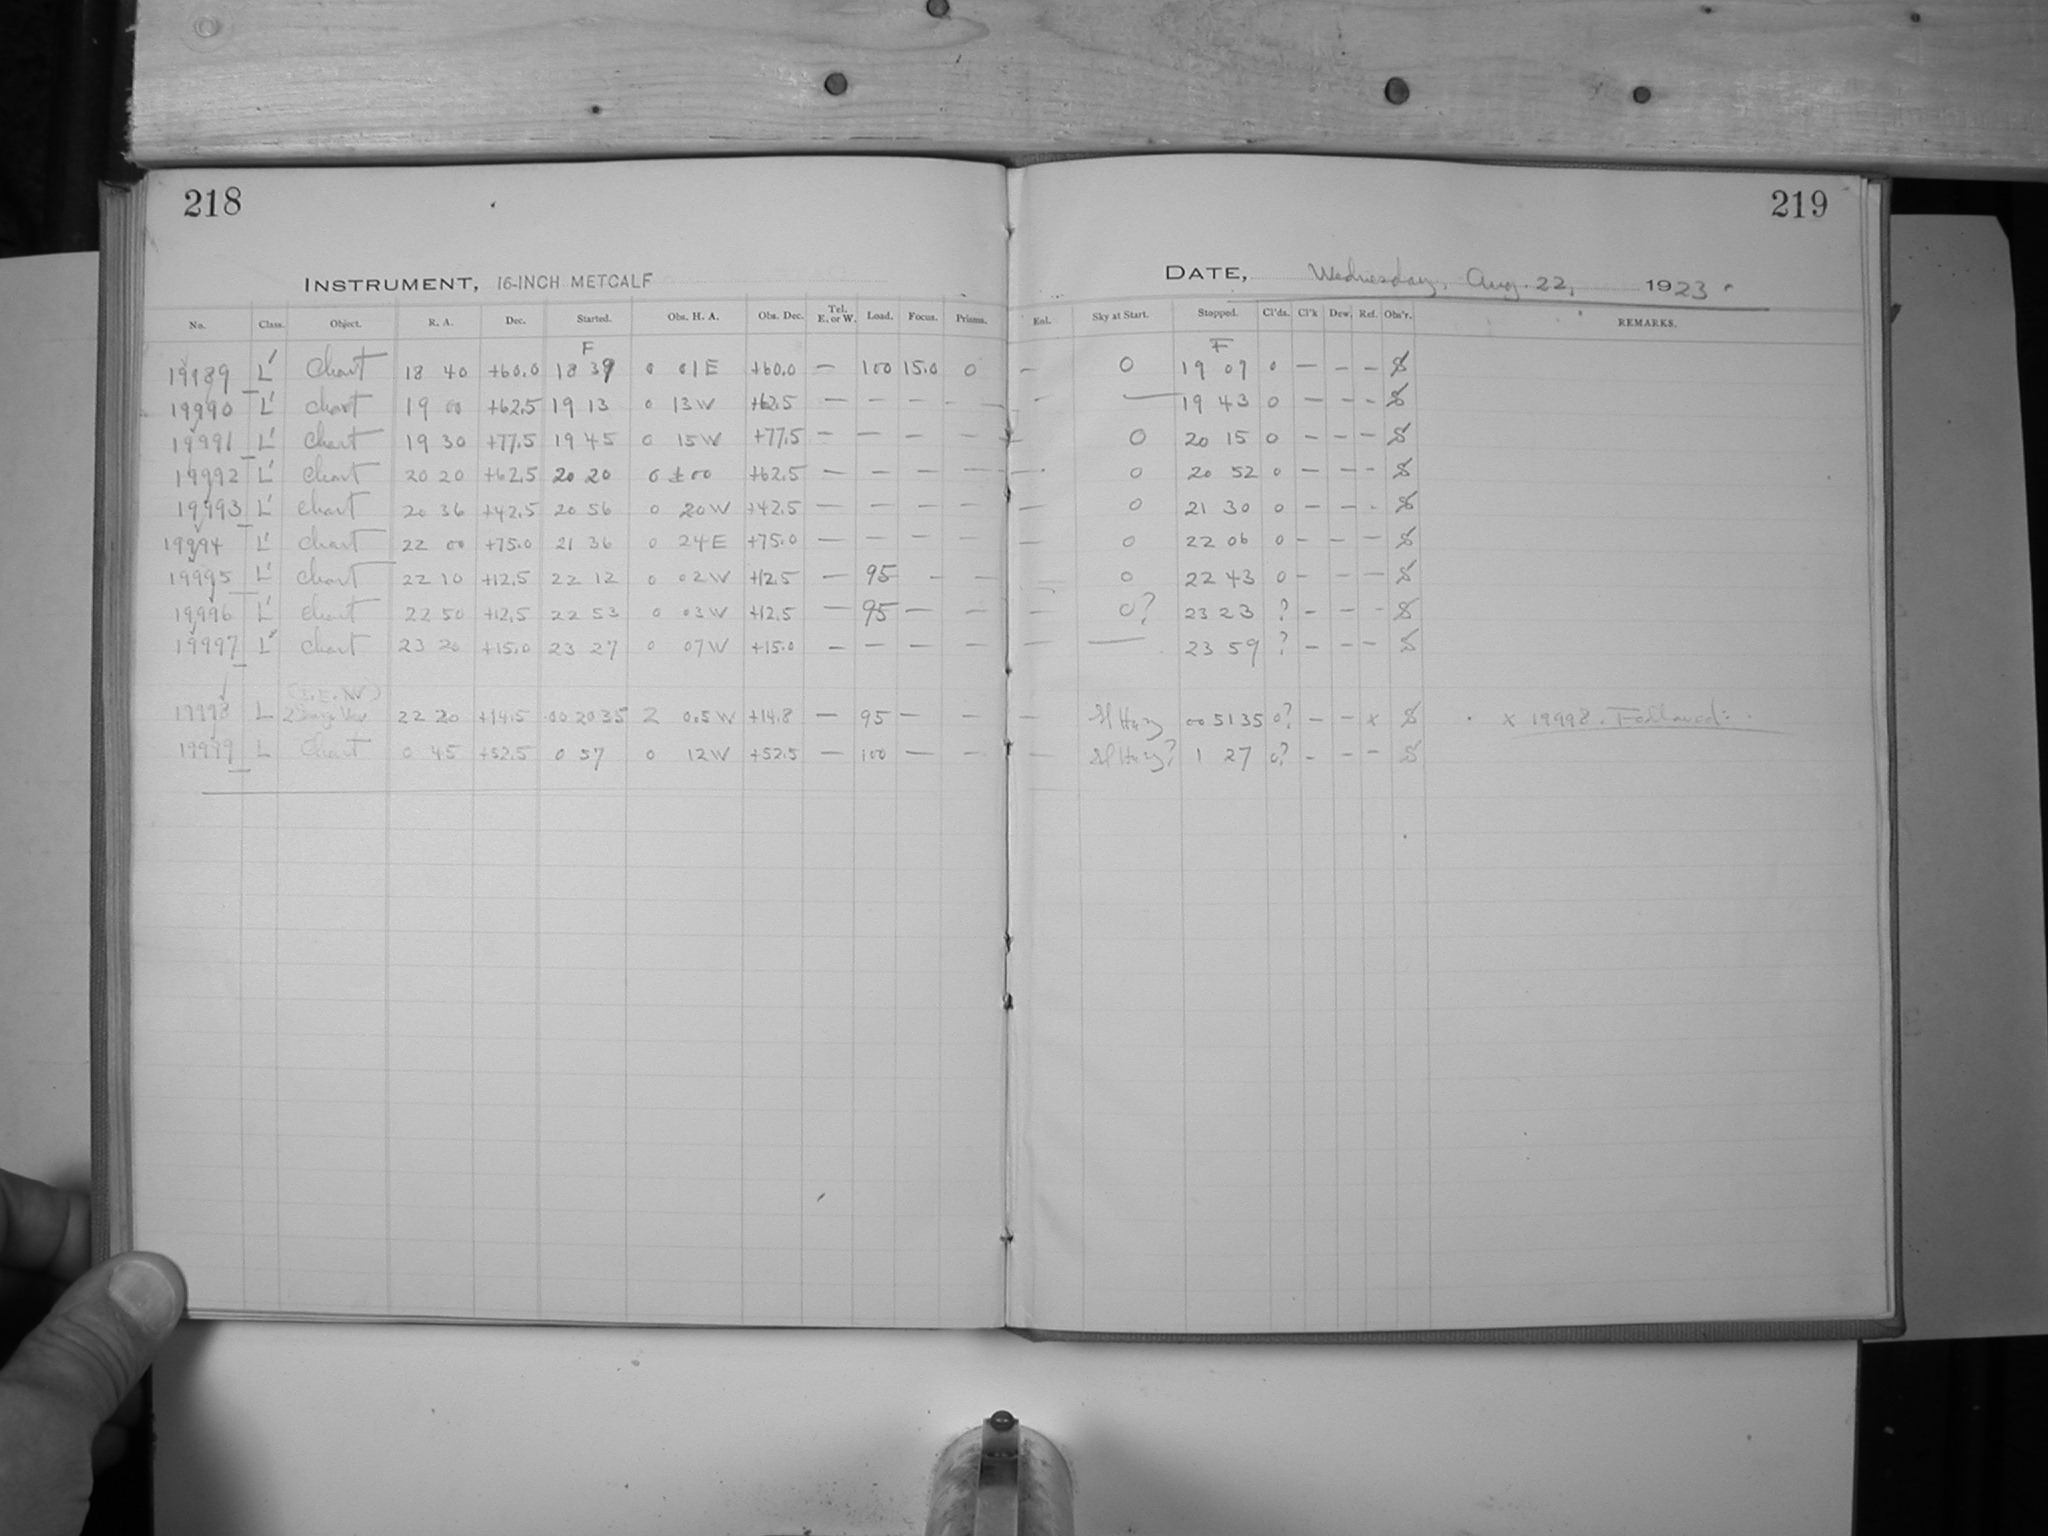 218
INSTRUMENT, 16-INCH METCALF
No. Class. Object. R. A. Dec. Started. Obs. H. A. Obs. Dec. Tel. E. or W. Load. Focus. Prisms.
F
19989 L' Chart 18 40 +60.0 18 39 0 01 E +60.0 — 100 15.0 0
19990 L' Chart 19 00 +62.5 19 13 0 13 W +62.5 — — — —
19991 L' Chart 19 30 +77.5 19 45 0 15 W +77.5 — — — —
19992 L' Chart 20 20 +62.5 20 20 0 ±00 +62.5 — — — —
19993 L' Chart 20 36 +42.5 20 56 0 20 W +42.5 — — — —
19994 L' Chart 22 00 +75.0 21 36 0 24 E +75.0 — — — —
19995 L' Chart 22 10 +12.5 22 12 0 02 W +12.5 — 95 — —
19996 L' Chart 22 50 +12.5 22 53 0 03 W +12.5 — 95 — —
19997 L' Chart 23 20 +15.0 23 27 0 07 W +15.0 — — — —
19998 L 22 20 +14.5 00 20 35 2 0.5 W +14.8 — 95 — —
19999 L Chart 0 45 +52.5 0 57 0 12 W +52.5 — 100 — —
219
DATE, Wednesday, Aug. 22, 1923.
Enl. Sky at Start. Stopped. Cl'ds. Cl'k Dew. Ref. Obs'r. REMARKS.
F
— 0 19 07 0 — — — S
— — 19 43 0 — — — S
— 0 20 15 0 — — — S
— 0 20 52 0 — — — S
— 0 21 30 0 — — — S
— 0 22 06 0 — — — S
— 0 22 43 0 — — — S
— 0? 23 23 ? — — — S
— — 23 59 ? — — — S
— Sl Hazy 00 51 35 0? — — x S x 19998. Followed:
— Sl Hazy? 1 27 0? — — — S